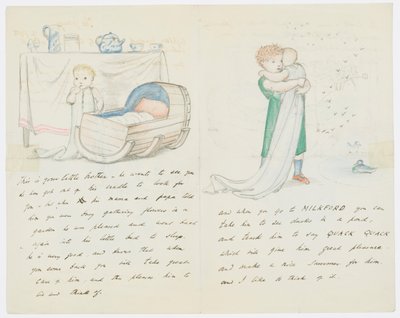 This is your little brother - he wants to see you
he has got out of his cradle to look for
you - he when his mama and papa told
him you were busy gathering flowers in a
garden he was pleased and went back
again into his little bed to sleep.
he is very good, and knows that when
you come back you will take great
care of him, and this pleases him to
lie and think of.
and when you go to MILKFORD you can
take him to see ducks in a pond,
and teach him to say QUACK QUACK
which will give him great pleasure.
and make a nice summer for him.
and I like to think of it.